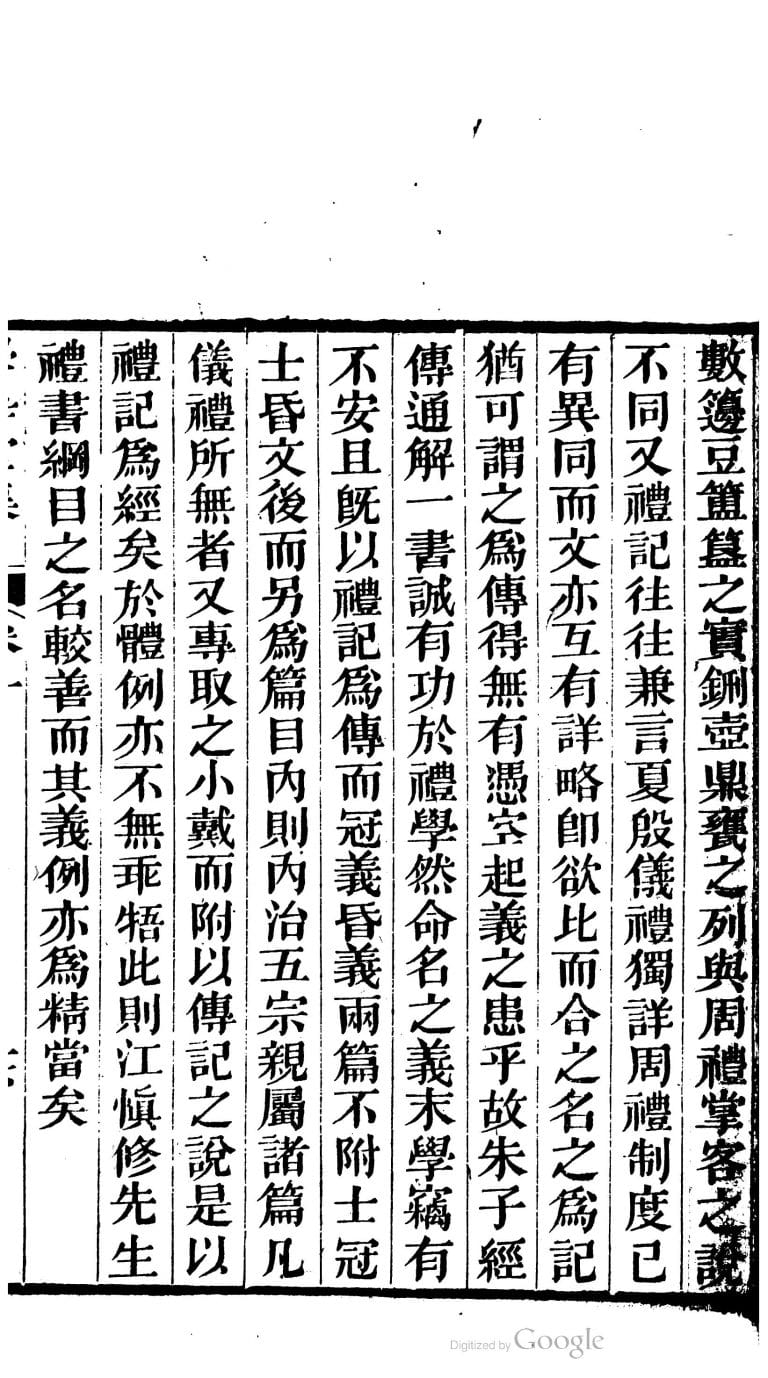 數籩豆簠簋之實鉶壺鼎甕之列與周禮掌客之說
不同又禮記往往兼言夏殷儀禮獨詳周禮制度已
有異同而文亦互有詳略卽欲比而合之名之爲記
猶可謂之爲傳得無有憑空起義之患乎故朱子經
傳通解一書誠有功於禮學然命名之義末學竊有
不安且旣以禮記爲傳而冠義昏義兩篇不附士冠
士昏文後而另爲篇目內則內治五宗親屬諸篇凡
儀禮所無者又專取之小戴而附以傳記之說是以
禮記爲經矣於體例亦不無乖牾此則江愼修先生
禮書綱目之名較善而其義例亦爲精當矣
Digitized by Google